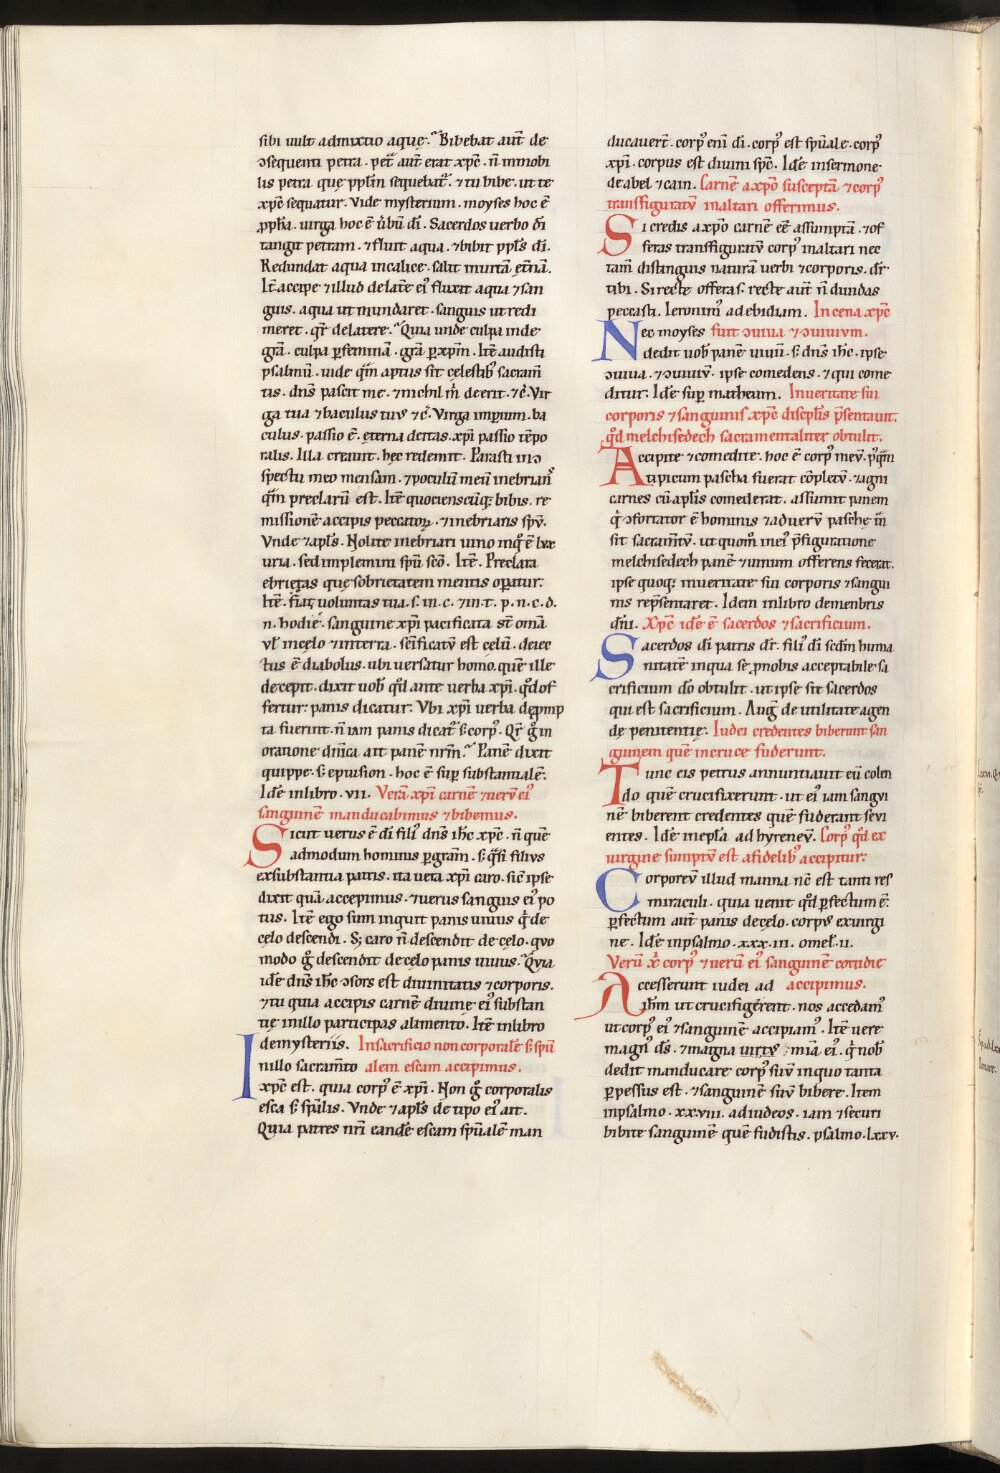 sibi uult admixtio aquę. Bibebat aut̄ de
ↄsequenti petra. petͣ aut̄ erat xp̄c. n̄ inmobi
lis petra quę pp̄lm̄ sequebat᷑. ⁊ tu bibe. ut te
xp̄c sequatur. Vide mysterium. moyses hoc ē
ꝓpha. uirga hoc ē ūbū dī. Sacerdos uerbo dī
tangit petram. ⁊ fluit aqua. ⁊ bibit ppl̄s dī.
Redundat aqua in calice. salit in uitā ęt̄nā.
It̄ accipe ⁊ illud de lat̄e ei᷒ fluxit aqua ⁊ san
guis. aqua ut mundaret. sanguis ut redi
meret. qr̄ de latere. Quia unde culpa inde
grā. culpa ꝑ feminā. grā ꝑ xp̄m. Itē audisti
psalmū. uide qm̄ aptus sit cęlestib᷒ sacram̄
tis. dn̄s pascit me. ⁊ nichil m̄ deerit. ⁊ c̄. Vir
ga tua ⁊ baculus tuus ⁊ c̄. Virga imperium. ba
culus. passio ē. ęterna deitas. xp̄i passio tēpo
ralis. Illa creauit. hęc redemit. Parasti in ↄ
spectu meo mensam. ⁊ poculū meū inebrian᷒
qm̄ preclarū est. Itē quotienscūq; bibis. re
missionē accipis peccatoꝝ. ⁊ inebriaris sp̄u.
Vnde ⁊ apl̄s. Nolite inebriari uino in q̊ ē lux
uria. sed implemini sp̄u sc̄o. Itē. Preclara
ebrietas quę sobrietatem mentis operatur.
Itē. fiat uoluntas tua. s. in. c. ⁊ in. t. p. n. c. d.
n. hodie. sanguine xp̄i pacificata st̄ om̄a
ul̄ in cęlo ⁊ in terra. sc̄ificatū est cęlū. deiec
tus ē diabolus. ubi uersatur homo. quē ille
decepit. dixit uob̄ qd̄ ante uerba xp̄i. qd̄ of
fertur: panis dicatur: Vbi xp̄i uerba deꝓmp
ta fuerint. n̄ iam panis dicat᷑ s; corp᷒. Qr̄ g̊ in
oratione dn̄ica ait panē nr̄m. Panē dixit
quippe. s; epiusion. hoc ē sup̄ substantialē.
Idē in libro. vii. Verā xp̄i carnē ⁊ uerū ei᷒
sanguinē manducabimus ⁊ bibemus.
Sicut uerus ē dī fili᷒ dn̄s ih̄c xp̄c. n̄ quē
admodum hominis ꝑ grām. s; q̄si filius
ex substantia patris. ita uera xp̄i caro. sic̄ ipse
dixit quā accepimus. ⁊ uerus sanguis ei᷒ po
tus. Itē ego sum inquit panis uiuus q̊ de
cęlo descendi. S; caro n̄ descendit de cęlo. quo
modo g̊ descendit de cęlo panis uiuus. Quia
idē dn̄s ih̄c ↄsors est diuinitatis ⁊ corporis.
⁊ tu quia accipis carnē diuinę ei᷒ substan
tię in illo participas alimento. Itē in libro
de mysteriis. In sacrificio non corporalē s; sp̄u
In illo sacram̄to alem escam accipimus.
xp̄c est. quia corp᷒ ē xp̄i. Non g̊ corporalis
esca s; sp̄ulis. Vnde ⁊ apl̄s de tipo ei᷒ ait.
Quia patres nr̄i eandē escam sp̄ualē man
ducauert̄. corp᷒ enī dī. corp᷒ est sp̄uale. corp᷒
xp̄i. corpus est diuini sp̄c. Idē in sermone
de abel ⁊ cain. Carnē a xp̄o susceptā ⁊ corp᷒
transfiguratū in altari offerimus.
Si credis a xp̄o carnē eē assumptā. ⁊ of
feras transfiguratū corp᷒ in altari nec
tam̄ distinguis naturā uerbi ⁊ corporis. dr̄
tibi. Si recte offeras. recte aut̄ n̄ diuidas
peccasti. Ieronim᷒ ad ebidiam. In cena xp̄c
Nec moyses fuit ↄuiua ⁊ ↄuiuium.
dedit uob̄ panē uiuū. s; dn̄s ih̄c. ipse
ↄuiua. ⁊ ↄuiuiū. ipse comedens. ⁊ qui come
ditur. Idē sup̄ matheum. In ueritate sui
corporis ⁊ sanguinis xp̄c discipl̄is p̄sentauit.
qd̄ melchisedech sacramentaliter obtulit.
Accipite ⁊ comedite. hoc ē corp᷒ meū. p᷒qm̄
tipicum pascha fuerat cōpletū. ⁊ agni
carnes cū apl̄is comederat. assumit panem
q̊ ↄfortator ē hominis ⁊ ad uerū paschę tn̄
sit sacram̄tū. ut quom̊ in ei᷒ p̄figuratione
melchisedech panē ⁊ uinum offerens fecerat.
ipse quoq; in ueritate sui corporis ⁊ sangui
nis rep̄sentaret. Idem in libro de menbris
dn̄i. Xp̄c idē ē sacerdos ⁊ sacrificium.
Sacerdos dī patris dr̄. fili᷒ dī scdm̄ huma
nitatē in qua se ꝓ nobis acceptabile sa
crificium dō obtulit. ut ipse sit sacerdos
qui est sacrificium. Aug᷒ de utilitate agen
dę penitentię. Iudei credentes biberunt san
guinem quē in cruce fuderunt.
Tunc eis petrus annuntiauit eū colen
do quē crucifixerunt. ut ei᷒ iam sangui
nē biberent credentes quē fuderant seui
entes. Idē in epl̄a ad hyreneū. Corp᷒ qd̄ ex
uirgine sumptū est a fidelib᷒ accipitur:
Corporeū illud manna nc̄ est tanti res
miraculi. quia uenit qd̄ ꝑfectum ē:
ꝑfectum aut̄ panis de cęlo. corpus ex uirgi
ne. Idē in psalmo. xxx. iii. omel̄. ii.
Verū x̄ corp᷒ ⁊ uerū ei᷒ sanguinē cotidie
Accesserunt iudei ad accipimus.
ih̄m ut crucifigerent. nos accedam᷒
ut corp᷒ ei᷒ ⁊ sanguinē accipiam᷒. Itē uere
magn᷒ d̄s. ⁊ magna uirtus ⁊ mīa ei᷒. q̊ nob̄
dedit manducare corp᷒ suū in quo tanta
ꝑpessus est. ⁊ sanguinē suū bibere. Item
in psalmo. xxviii. ad iudeos. iam ⁊ securi
bibite sanguinē quē fudistis. psalmo. lxxv.